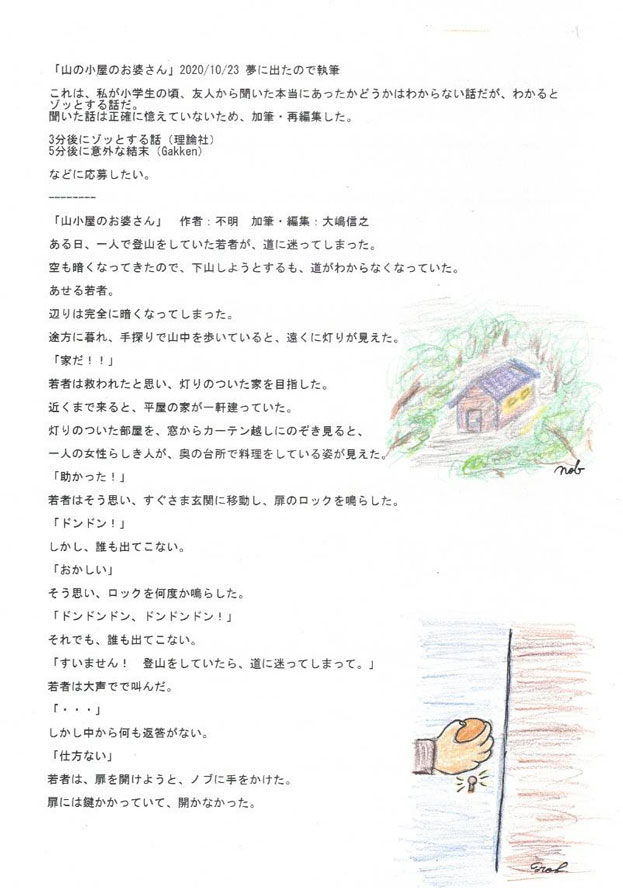 「山の小屋のお婆さん」2020/10/23 夢に出たので執筆
これは、私が小学生の頃、友人から聞いた本当にあったかどうかはわからない話だが、わかると
ゾッとする話だ。
聞いた話は正確に憶えていないため、加筆・再編集した。
3分後にゾッとする話（理論社）
5分後に意外な結末（Gakken）
などに応募したい。
--------
「山小屋のお婆さん」　作者：不明　加筆・編集：大嶋信之
ある日、一人で登山をしていた若者が、道に迷ってしまった。
空も暗くなってきたので、下山しようとするも、道がわからなくなっていた。
あせる若者。
辺りは完全に暗くなってしまった。
途方に暮れ、手探りで山中を歩いていると、遠くに灯りが見えた。
「家だ！！」
若者は救われたと思い、灯りのついた家を目指した。
近くまで来ると、平屋の家が一軒建っていた。
灯りのついた部屋を、窓からカーテン越しにのぞき見ると、
一人の女性らしき人が、奥の台所で料理をしている姿が見えた。
「助かった！」
若者はそう思い、すぐさま玄関に移動し、扉のロックを鳴らした。
「ドンドン！」
しかし、誰も出てこない。
「おかしい」
そう思い、ロックを何度か鳴らした。
「ドンドンドン、ドンドンドン！」
それでも、誰も出てこない。
「すいません！　登山をしていたら、道に迷ってしまって。」
若者は大声でで叫んだ。
「・・・」
しかし中から何も返答がない。
「仕方ない」
若者は、扉を開けようと、ノブに手をかけた。
扉には鍵かかっていて、開かなかった。
nob
nob